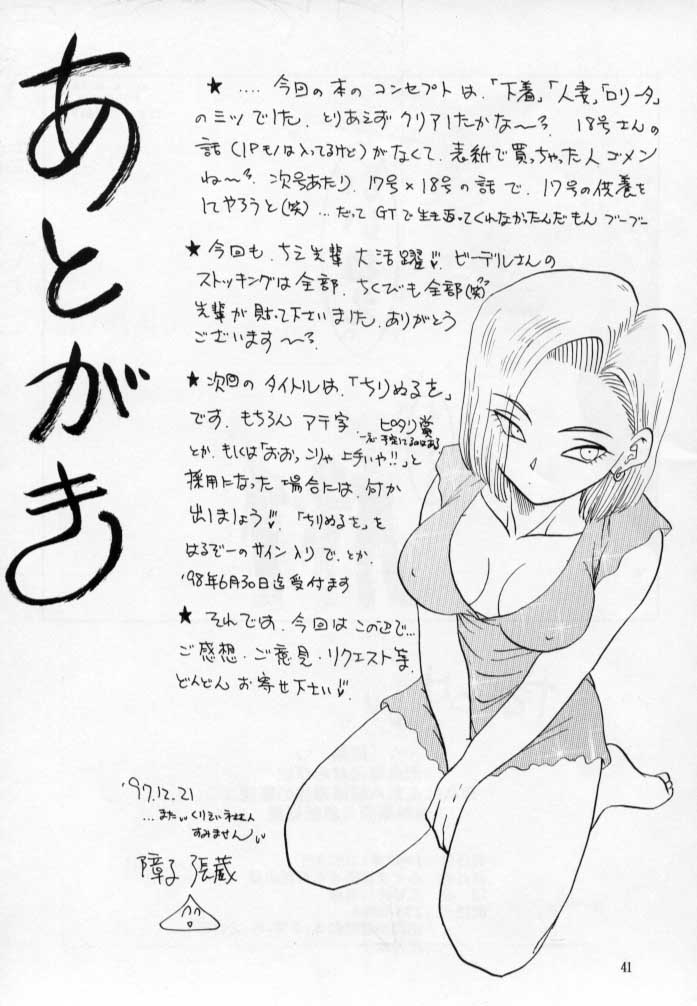 あとがき
★ ‥‥ 今回の本の コンセプト は、「下着」、「人妻」、「ロリータ」
の ミツ でした。 とりあえず クリアしたかな〜?。 18号さんの
話 (1Pモノは入ってるけど) がなくて、 表紙で買っちゃった人 ゴメン
ね〜?。 次号あたり、17号×18号の話 で、 17号の供養を
してやろうと(笑) … だって GTで生き返ってくれなかったんだもん ブーブー
★ 今回も、ちえ先輩 大活躍 ビーデルさんの
ストッキングは全部、ちくびも全部(笑)
先輩が貼って下さいました。ありがとう
ございます 〜?。
★ 次回の タイトルは、「ちりぬるを」
です。 もちろん アテ字。 ピタリ賞
一応予定してるのはある
とか、もしくは「おおっ こりゃ 上手いや!!」と
採用になった 場合には、何か
出しましょう 。「ちりぬるを」を
はるぞーの サイン 入り で、とか。
'98年6月30日迄受付ます
★ それでは、今回は この辺で…
ご感想・ご意見・リクエスト等
どんどん お寄せ下さい
'97.12.21
… また
すみません
障子 張蔵
41